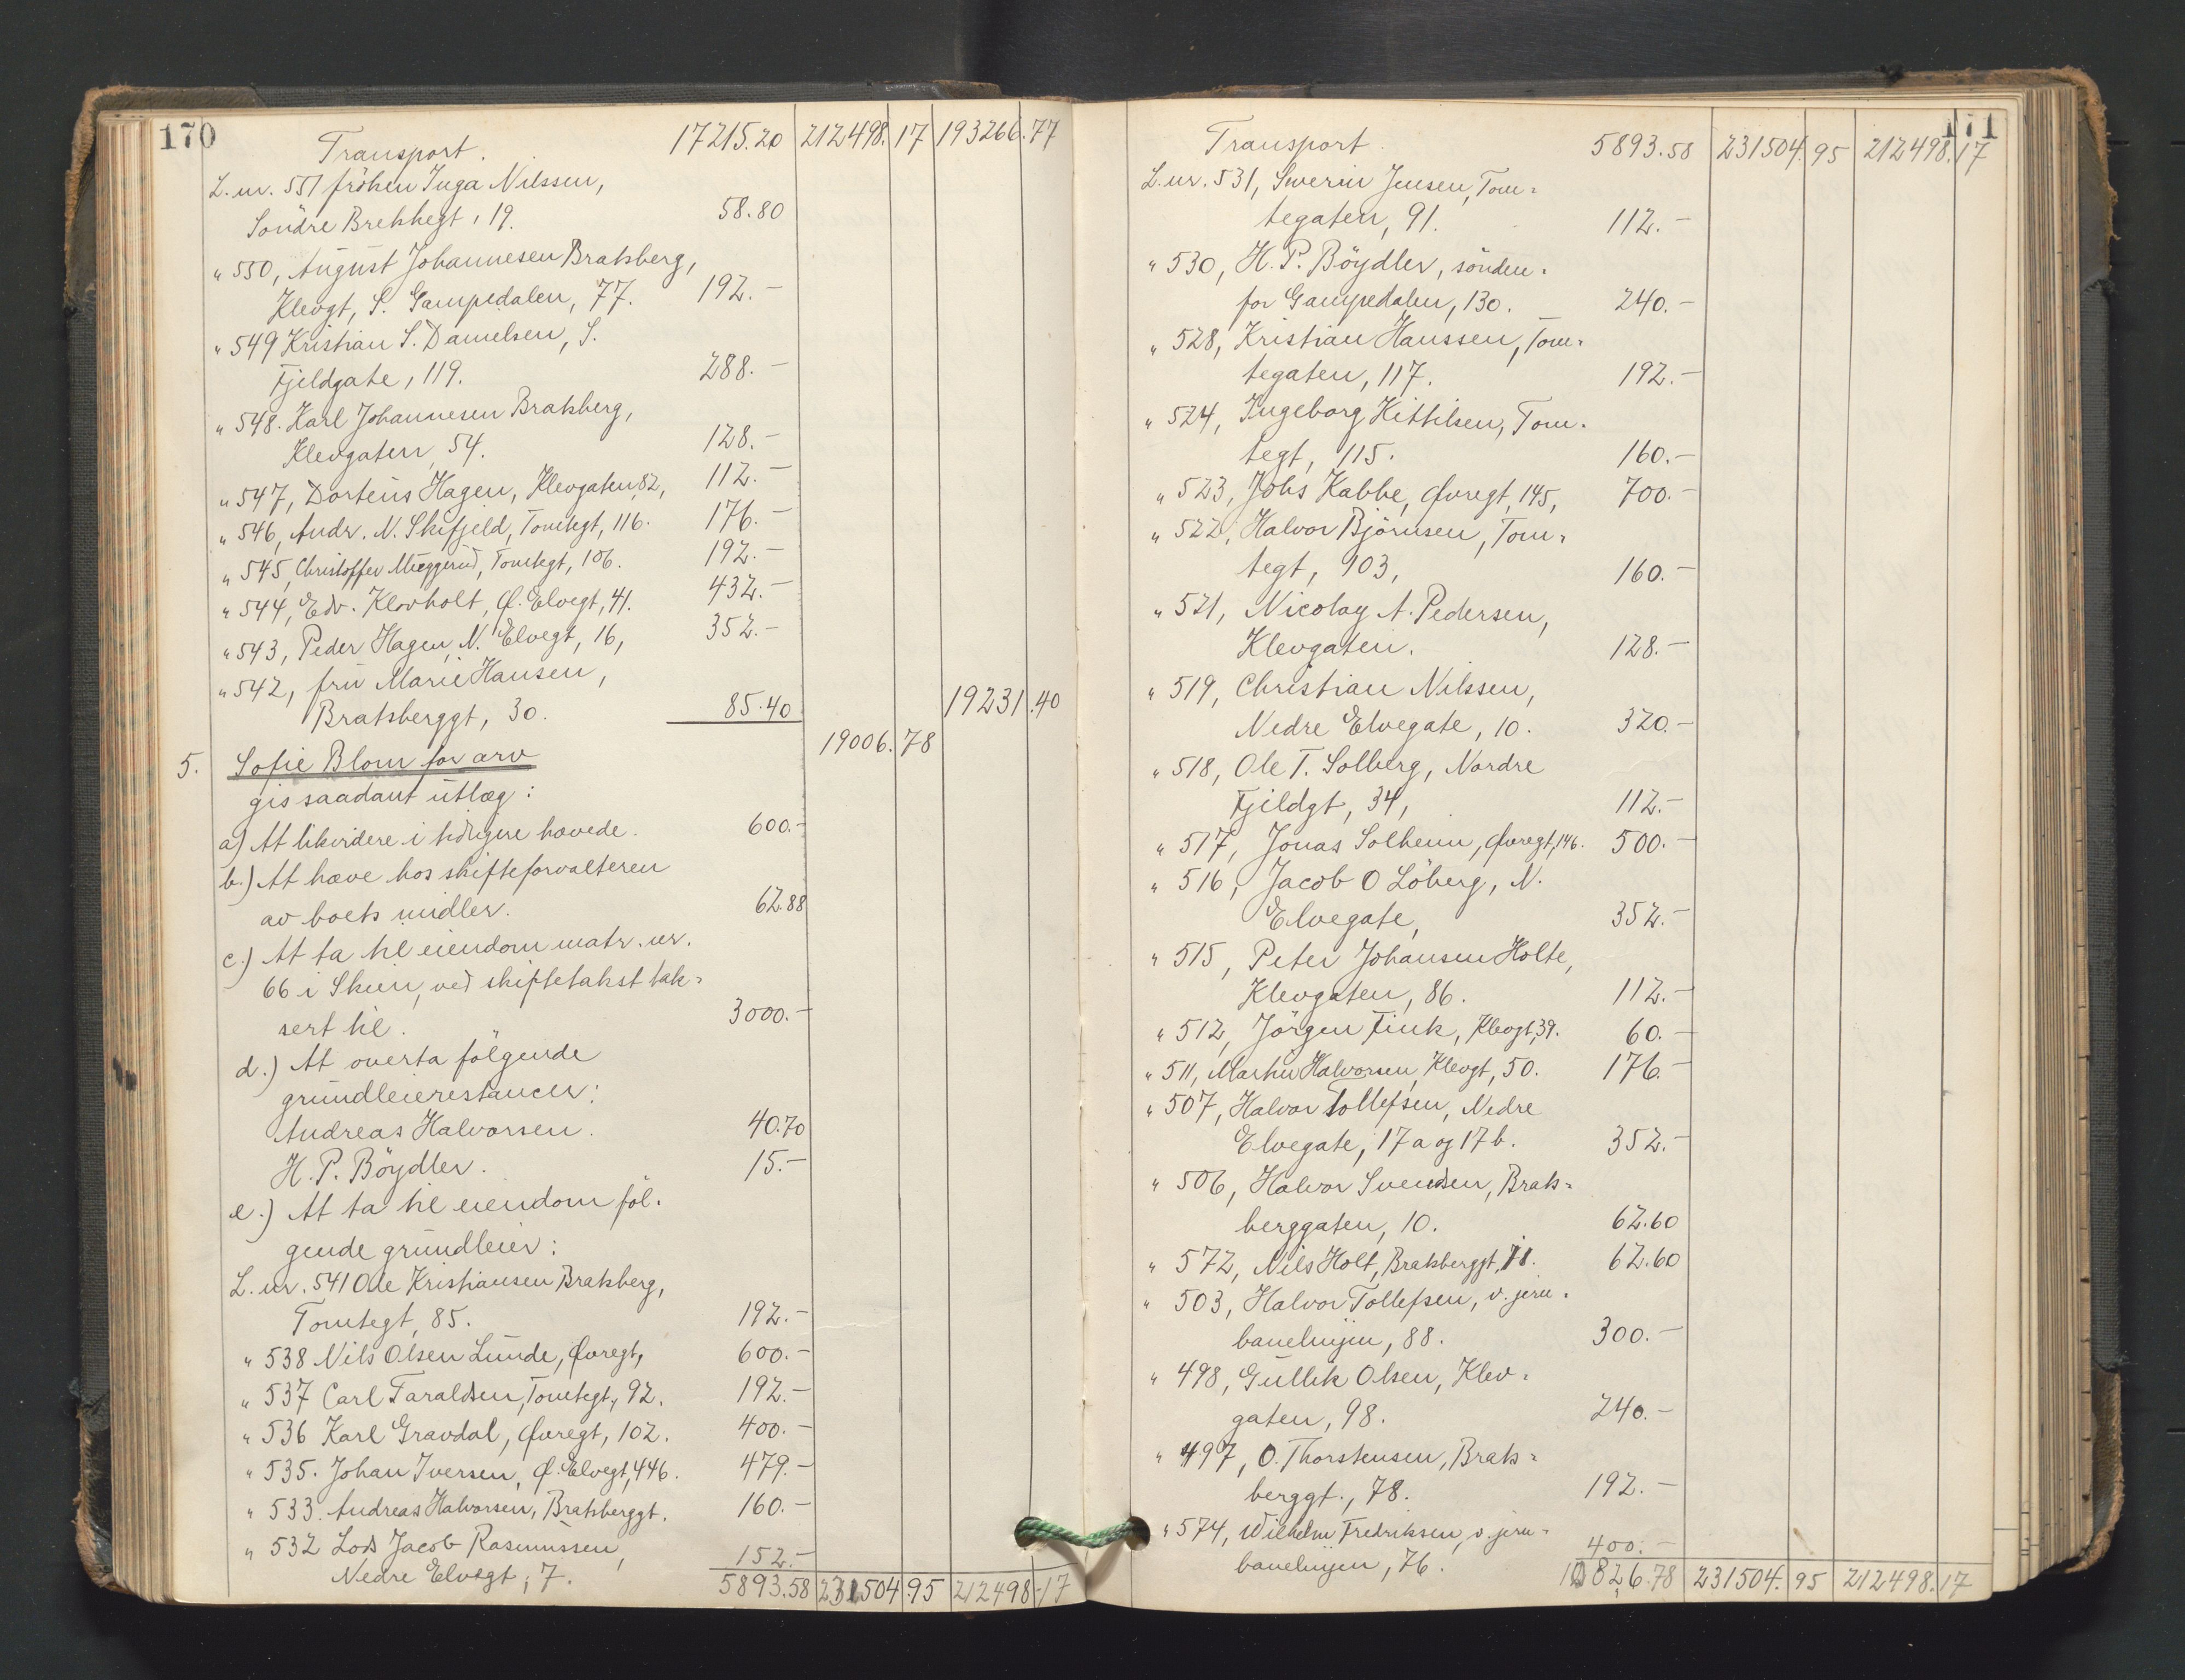 170
Transport. 17215.20 212498.17 193266.77
L. nr. 551 fröken Inga Nilssen,
Söndre Brekkegt, 19. 58.80
" 550, August Johannesen Bratsberg,
Klevgt, S. Gampedalen, 77. 192.-
" 549 Kristian S. Danielsen, S.
Fjeldgate, 119. 288.-
" 548. Karl Johannesen Bratsberg,
Klevgaten, 54. 128.-
" 547, Dorteus Hagen, Klevgaten, 82, 112.-
" 546, Andr. N. Skifjeld, Tomtegt, 116. 176.-
" 545, Christoffer Muggerud, Tomtegt, 106. 192.-
" 544, Edv. Klovholt, Ø. Elvegt, 41. 432.-
" 543, Peder Hagen, N. Elvegt, 16, 352.-
" 542, frü Marie Hansen,
Bratsberggt, 30. 85.40 19231.40
19006.78
5. Sofie Blom for arv
gis saadant utlæg:
a) At likvidere i tidligere hævede. 600.-
b.) At hæve hos skifteforvalteren
av boets midler. 62.88
c.) At ta til eiendom matr. nr.
66 i Skien, ved skiftetakst tak-
sert til. 3000.-
d.) At overta følgende
grundleierestancer:
Andreas Halvorsen. 40.70
H. P. Böydler. 15.-
e.) At ta til eiendom føl-
gende grundleier:
L. nr. 541 Ole Kristiansen Bratsberg,
Tomtegt, 85. 192.-
" 538 Nils Olsen Lunde, Øvregt, 600.-
" 537 Carl Taraldsen, Tomtegt, 92. 192.-
" 536 Karl Gravdal, Øvregt, 102. 400.-
" 535. Johan Iversen, Ø. Elvegt, 446. 479.-
" 533. Andreas Halvorsen, Bratsberggt. 160.-
" 532 Lods Jacob Rasmussen,
Nedre Elvegt, 7. 152.-
5893.58 231504.95 212498.17
171
Transport. 5893.58 231504.95 212498.17
L. nr. 531, Swerin Jensen, Tom-
tegaten, 91. 112.-
" 530, H. P. Böydler, sönden-
for Gampedalen, 130. 240.-
" 528, Kristian Hanssen, Tom-
tegaten, 117. 192.-
" 524, Ingeborg Kittilsen, Tom-
tegt, 115. 160.-
" 523, Johs Kabbe, Øvregt, 145, 700.-
" 522, Halvor Björnsen, Tom-
tegt, 103, 160.-
" 521, Nicolay A. Pedersen,
Klevgaten. 128.-
" 519, Christian Nilssen,
Nedre Elvegate, 10. 320.-
" 518, Ole T. Solberg, Nordre
Fjeldgt, 34, 112.-
" 517, Jonas Solheim, Øvregt, 146. 500.-
" 516, Jacob O Löberg, N.
Elvegate, 352.-
" 515, Peter Johansen Holte,
Klevgaten, 86. 112.-
" 512, Jörgen Fink, Klevgt, 39. 60.-
" 511, Martin Halvorsen, Klevgt, 50. 176.-
" 507, Halvor Tollefsen, Nedre
Elvegate, 17a og 17b. 352.-
" 506, Halvor Svendsen, Brats-
berggaten, 10. 62.60
" 572, Nils Holt, Bratsberggt, 18. 62.60
" 503, Halvor Tollefsen, v. jern-
banelinjen, 88. 300.-
" 498, Gullik Olsen, Klev-
gaten, 98. 240.-
" 497, O. Thorstensen, Brats-
berggt., 78. 192.-
" 574, Wilhelm Fredriksen, v. jern-
banelinjen, 76. 400.-
10826.78 231504.95 212498.17